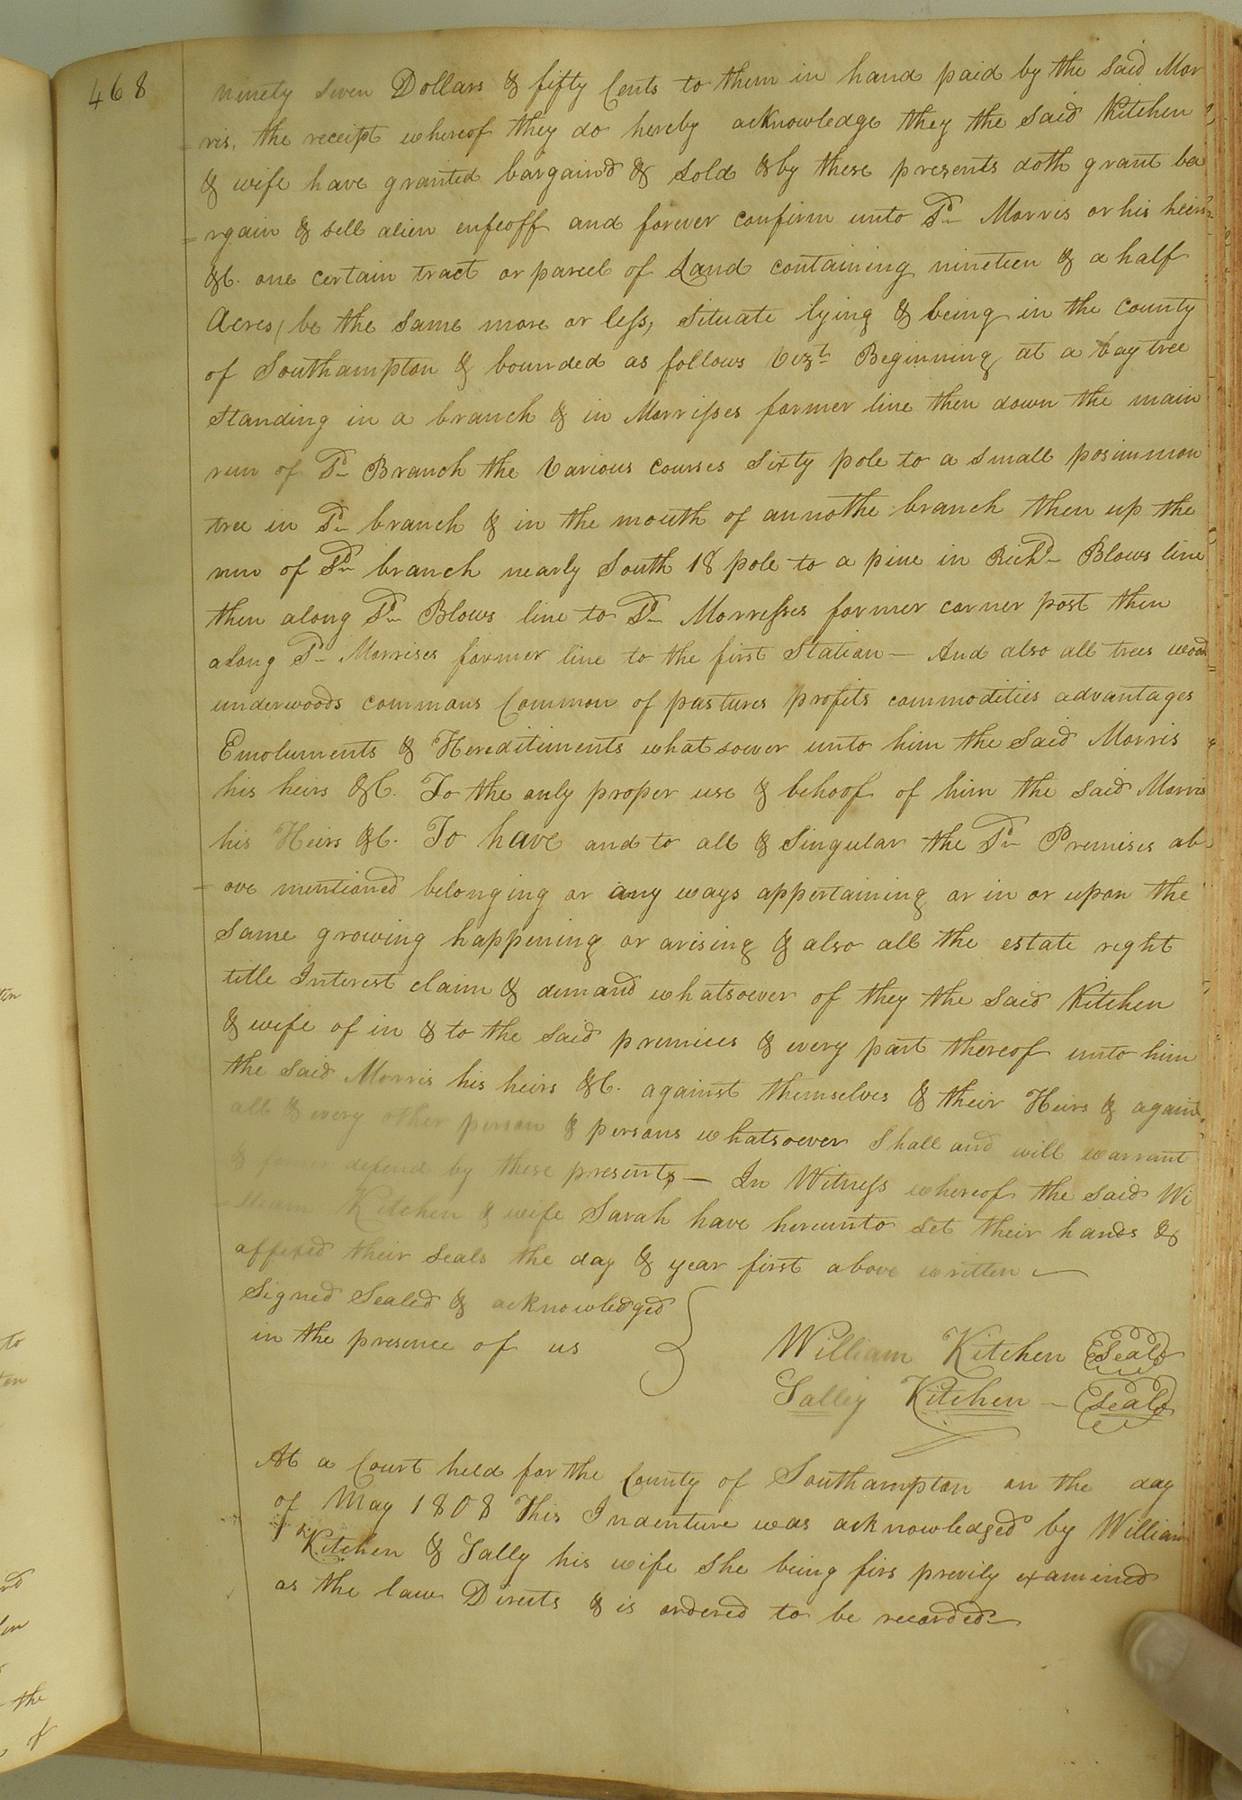 468
ninety seven Dollars & fifty Cents to them in hand paid by the said Mor
ris, the receipt whereof they do hereby acknowledge they the said Kitchen
& wife have granted bargain'd & sold & by these presents doth grant ba
rgain & sell alien enfeoff and forever confirm unto Sd Morris or his heirs
&C. one certain tract or parcel of Land containing nineteen & a half
Acres, be the same more or less, situate lying & being in the county
of Southampton & bounded as follows Vizt Beginning at a bay tree
standing in a branch & in Morrisses former line then down the main
run of Sd Branch the various courses sixty pole to a small posimmon
tree in Sd branch & in the mouth of annothe branch then up the
run of Sd branch nearly South 18 pole to a pine in Richd Blows line
then along Sd Blows line to Sd Morrisses former corner post then
along Sd Morrises former line to the first Station — And also all trees woods
underwoods commons Common of pastures profits commodities advantages
Emoluments & Hereditiments whatsoever unto him the said Morris
his heirs &C. To the only proper use & behoof of him the said Morris
his Heirs &C. To have and to all & Singular the Sd Premises ab
ove mentioned belonging or any ways appertaining or in or upon the
same growing happening or arising & also all the estate right
title Interest claim & demand whatsoever of they the said Kitchen
& wife of in & to the said premises & every part thereof unto him
the said Morris his heirs &C. against themselves & their Heirs & against
all & every other person & persons whatsoever Shall and will warrant
& defend by these presents — In Witness whereof the said Wi
lliam Kitchen & wife Sarah have hereunto set their hands &
affixed their seals the day & year first above written —
Signed Sealed & acknowledged
in the presence of us
William Kitchen Seal
Salley Kitchen — Seal
At a Court held for the County of Southampton on the day
of May 1808 This Indenture was acknowledged by William
Kitchen & Sally his wife She being firs previly examined
as the law Directs & is ordered to be recorded —